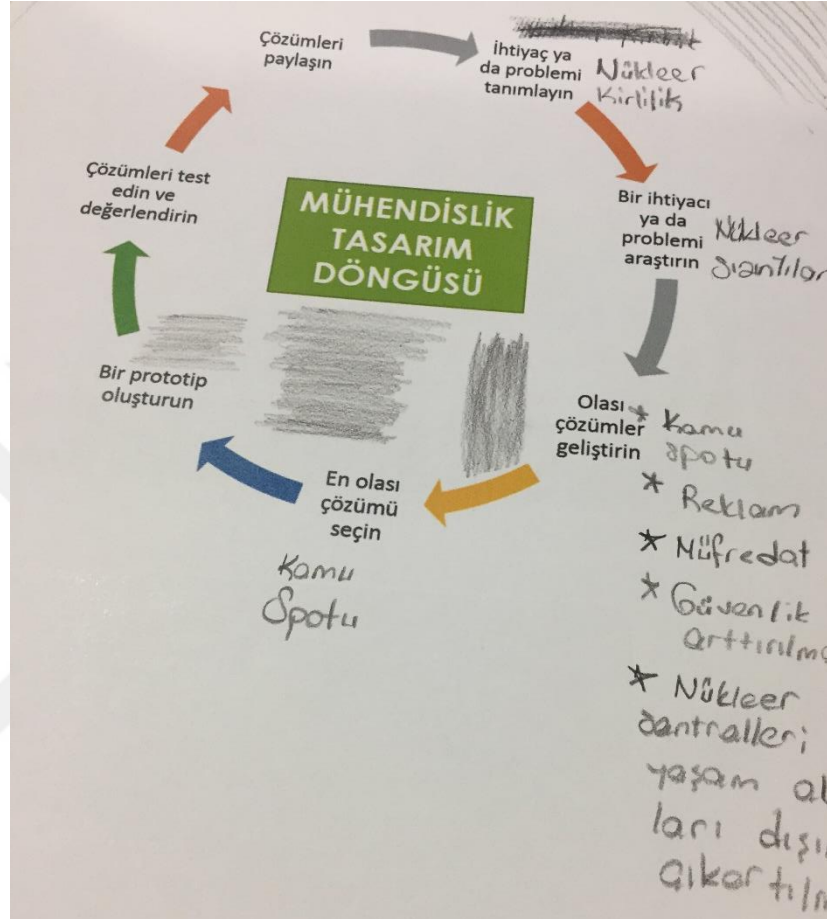 Çözümleri
paylaşın
İhtiyaç ya
da problemi
tanımlayın
Nükleer
Kirlilik
Bir ihtiyacı
ya da
problemi
araştırın
Nükleer
Sızıntılar
Olası
çözümler
geliştirin
* Kamu
spotu
* Reklam
* Müfredat
* Güvenlik
arttırılma
* Nükleer
santralleri
yaşam al
ları dışı
çıkartılm
En olası
çözümü
seçin
Kamu
Spotu
Bir prototip
oluşturun
Çözümleri test
edin ve
değerlendirin
MÜHENDİSLİK
TASARIM
DÖNGÜSÜ